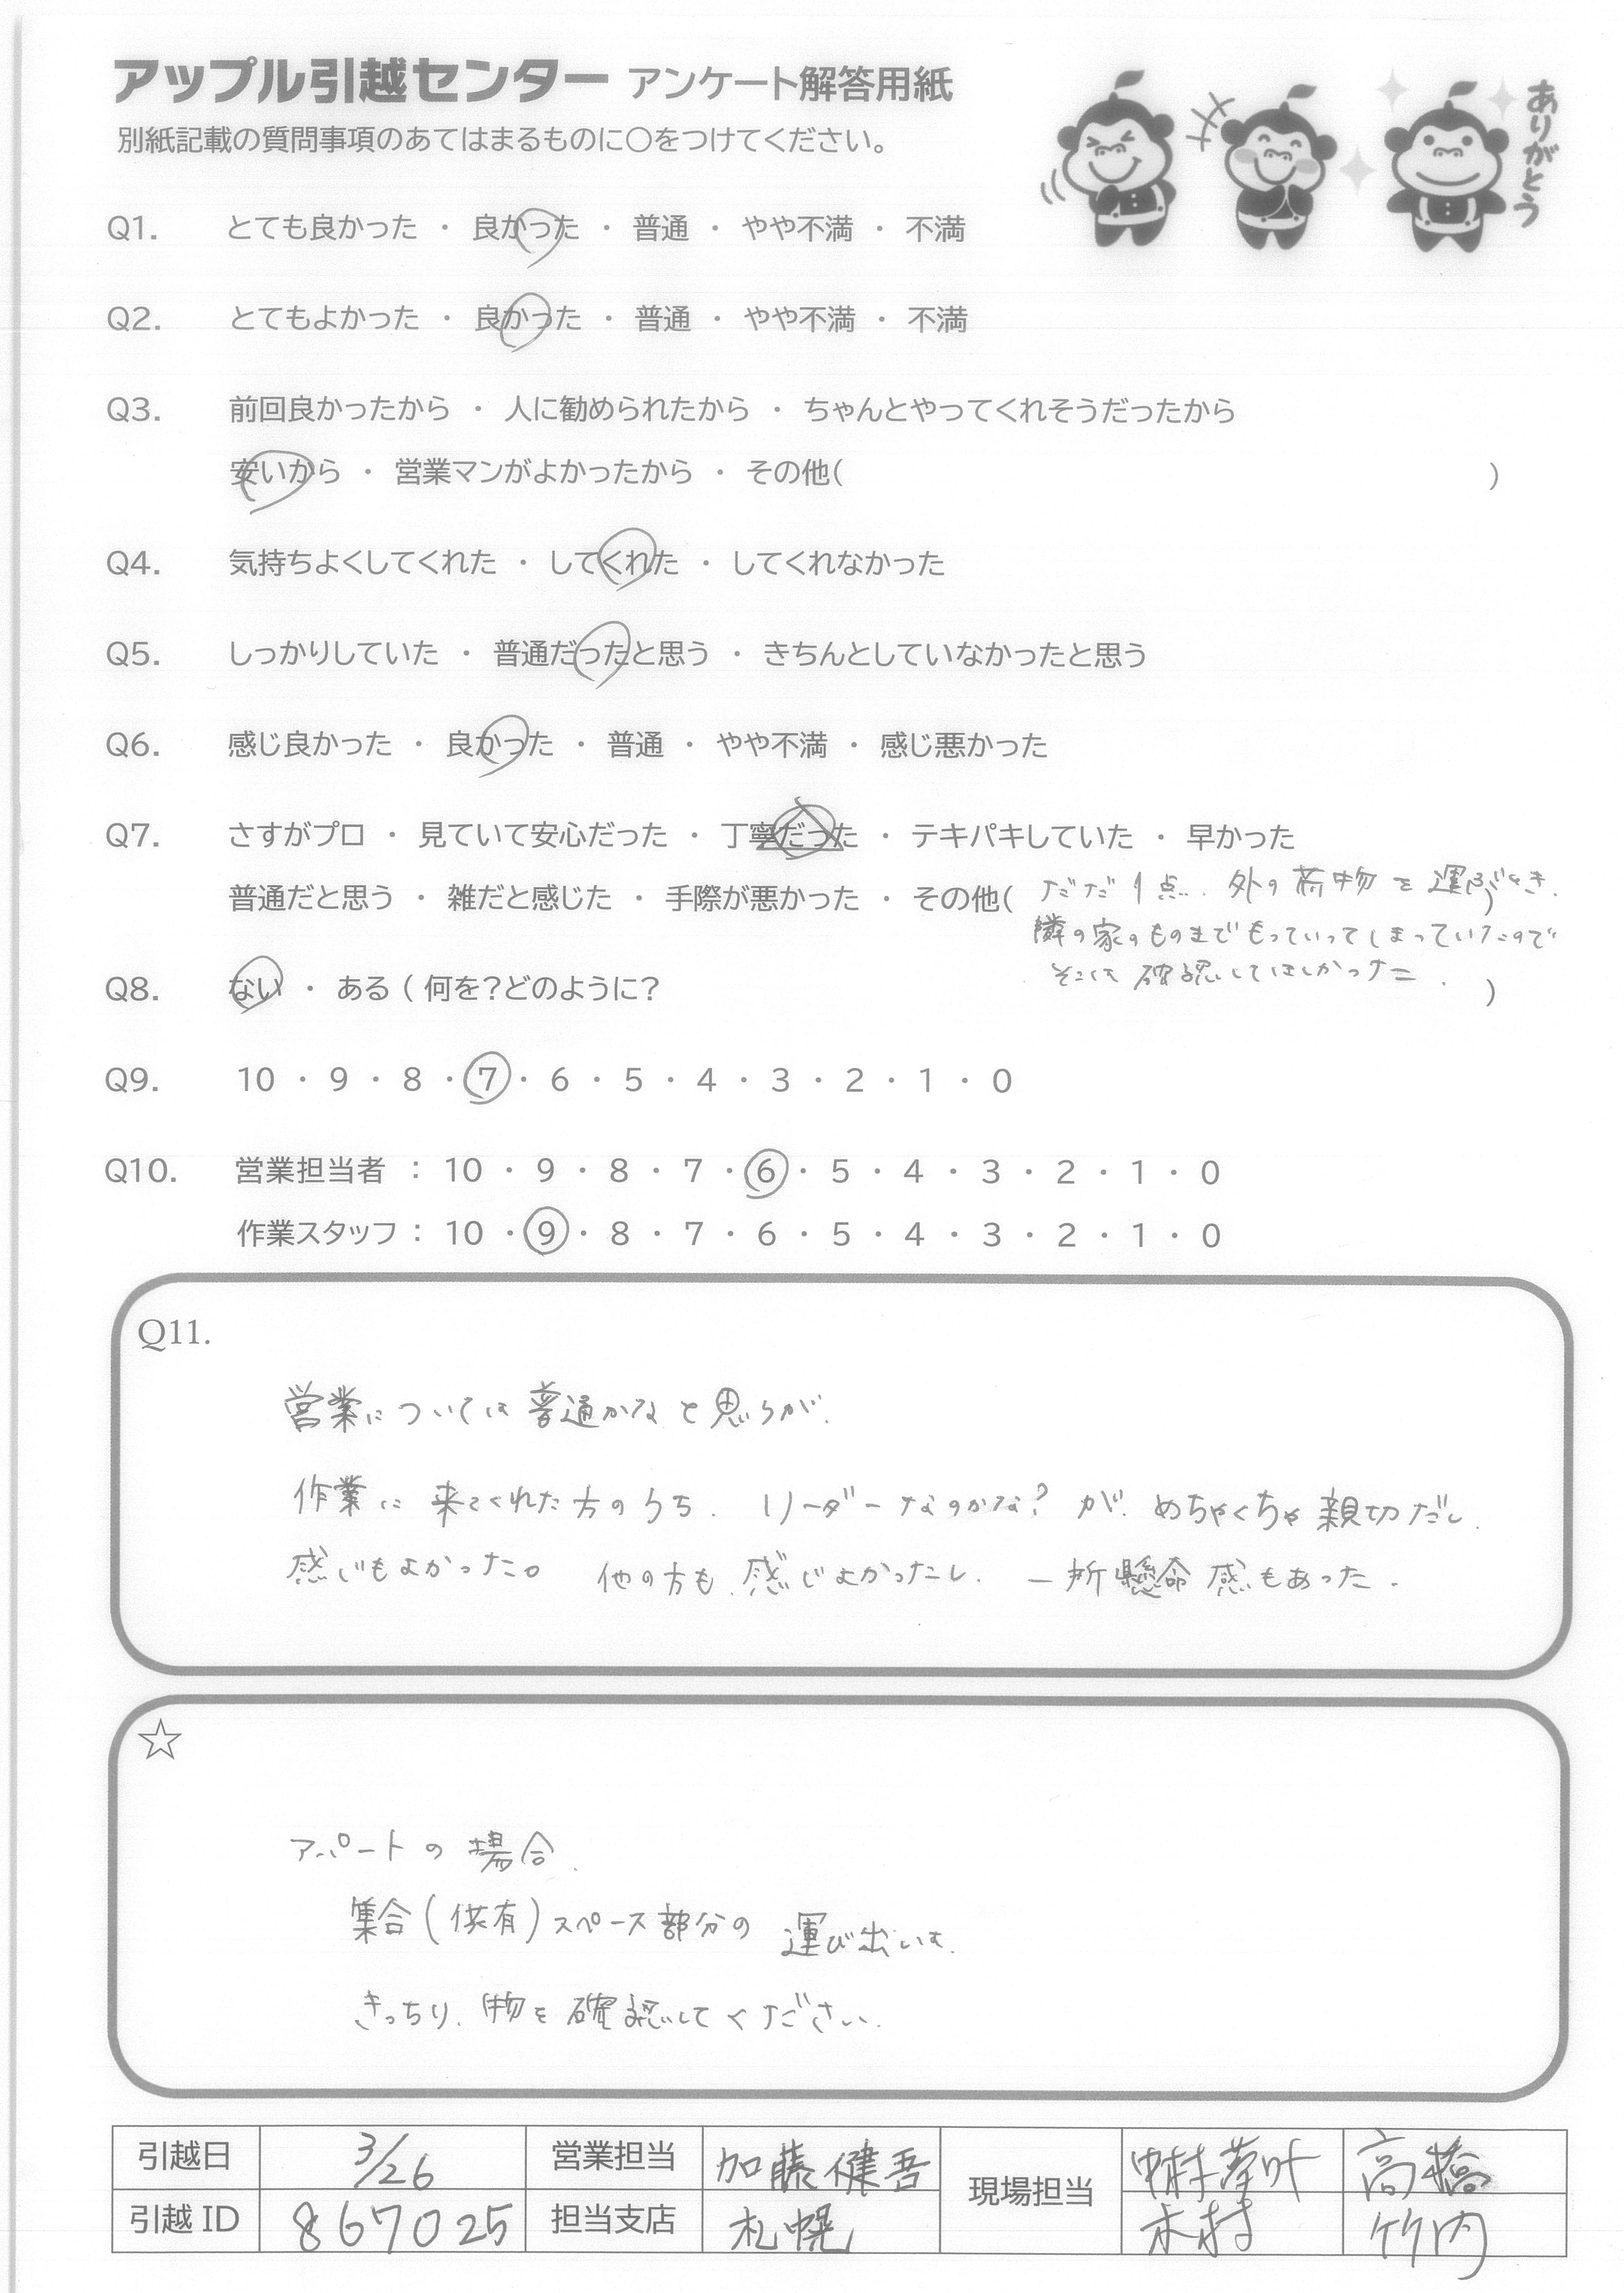 アップル引越センター アンケート解答用紙
別紙記載の質問事項のあてはまるものに〇をつけてください。
ありがとう
Q1. とても良かった ・ 良かった ・ 普通 ・ やや不満 ・ 不満
Q2. とてもよかった ・ 良かった ・ 普通 ・ やや不満 ・ 不満
Q3. 前回良かったから ・ 人に勧められたから ・ ちゃんとやってくれそうだったから
安いから ・ 営業マンがよかったから ・ その他( )
Q4. 気持ちよくしてくれた ・ してくれた ・ してくれなかった
Q5. しっかりしていた ・ 普通だったと思う ・ きちんとしていなかったと思う
Q6. 感じ良かった ・ 良かった ・ 普通 ・ やや不満 ・ 感じ悪かった
Q7. さすがプロ ・ 見ていて安心だった ・ 丁寧だった ・ テキパキしていた ・ 早かった
普通だと思う ・ 雑だと感じた ・ 手際が悪かった ・ その他( ただ1点、外の荷物を運ぶとき、)
隣の家のものまでもっていってしまっていたので
そこは確認してほしかった。
Q8. ない ・ ある ( 何を?どのように? )
Q9. 10 ・ 9 ・ 8 ・ 7 ・ 6 ・ 5 ・ 4 ・ 3 ・ 2 ・ 1 ・ 0
Q10. 営業担当者 : 10 ・ 9 ・ 8 ・ 7 ・ 6 ・ 5 ・ 4 ・ 3 ・ 2 ・ 1 ・ 0
作業スタッフ : 10 ・ 9 ・ 8 ・ 7 ・ 6 ・ 5 ・ 4 ・ 3 ・ 2 ・ 1 ・ 0
Q11.
営業については普通かなと思うが、
作業に来てくれた方のうち、リーダーなのかな?が、めちゃくちゃ親切だし、
感じもよかった。他の方も、感じよかったし、一所懸命感もあった。
☆
アパートの場合、
集合(供有)スペース部分の運び出しは、
きっちり、物を確認してください。
引越日 3/26 営業担当 加藤健吾 現場担当 中村 高橋
引越ID 867025 担当支店 札幌 木村 竹内